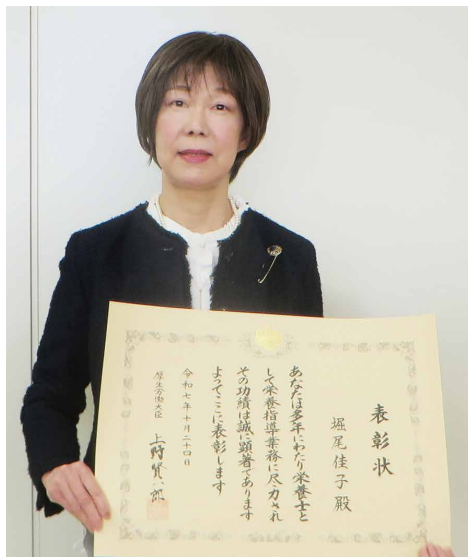 表彰状
堀尾佳子殿
あなたは多年にわたり栄養士と
して栄養指導業務に尽力され
その功績は誠に顕著であります
よってここに表彰します
令和七年十月二十四日
厚生労働大臣 上野賢一郎